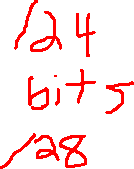 /24
bits
/28